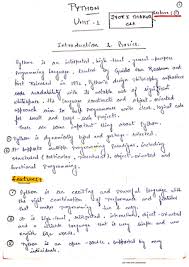 PYTHON
Unit - 1
JYOTI
CSE
Lecture 1
Introduction & Basics
Python is an interpreted, high-level, general-purpose
programming language, created by Guido Van Rossum and
first released in 1991, Python's design philosophy emphasizes
code readability with its notable use of significant
whitespace. Its language constructs and object-oriented
approach aim to help programmers to write clear code
for small and large scale projects.
Python is dynamically typed and garbage-collected.
It supports multiple programming paradigms, including
structured (particularly, procedural), object-oriented and
functional Programming.
Features
Python is an exciting and powerful language with
the right combination of performance and features
that makes programming fun & easy.
It is high-level, interpreted, interactive, object-oriented
and a reliable language that is very simple and uses
Python is an open-source, supported by many
individuals